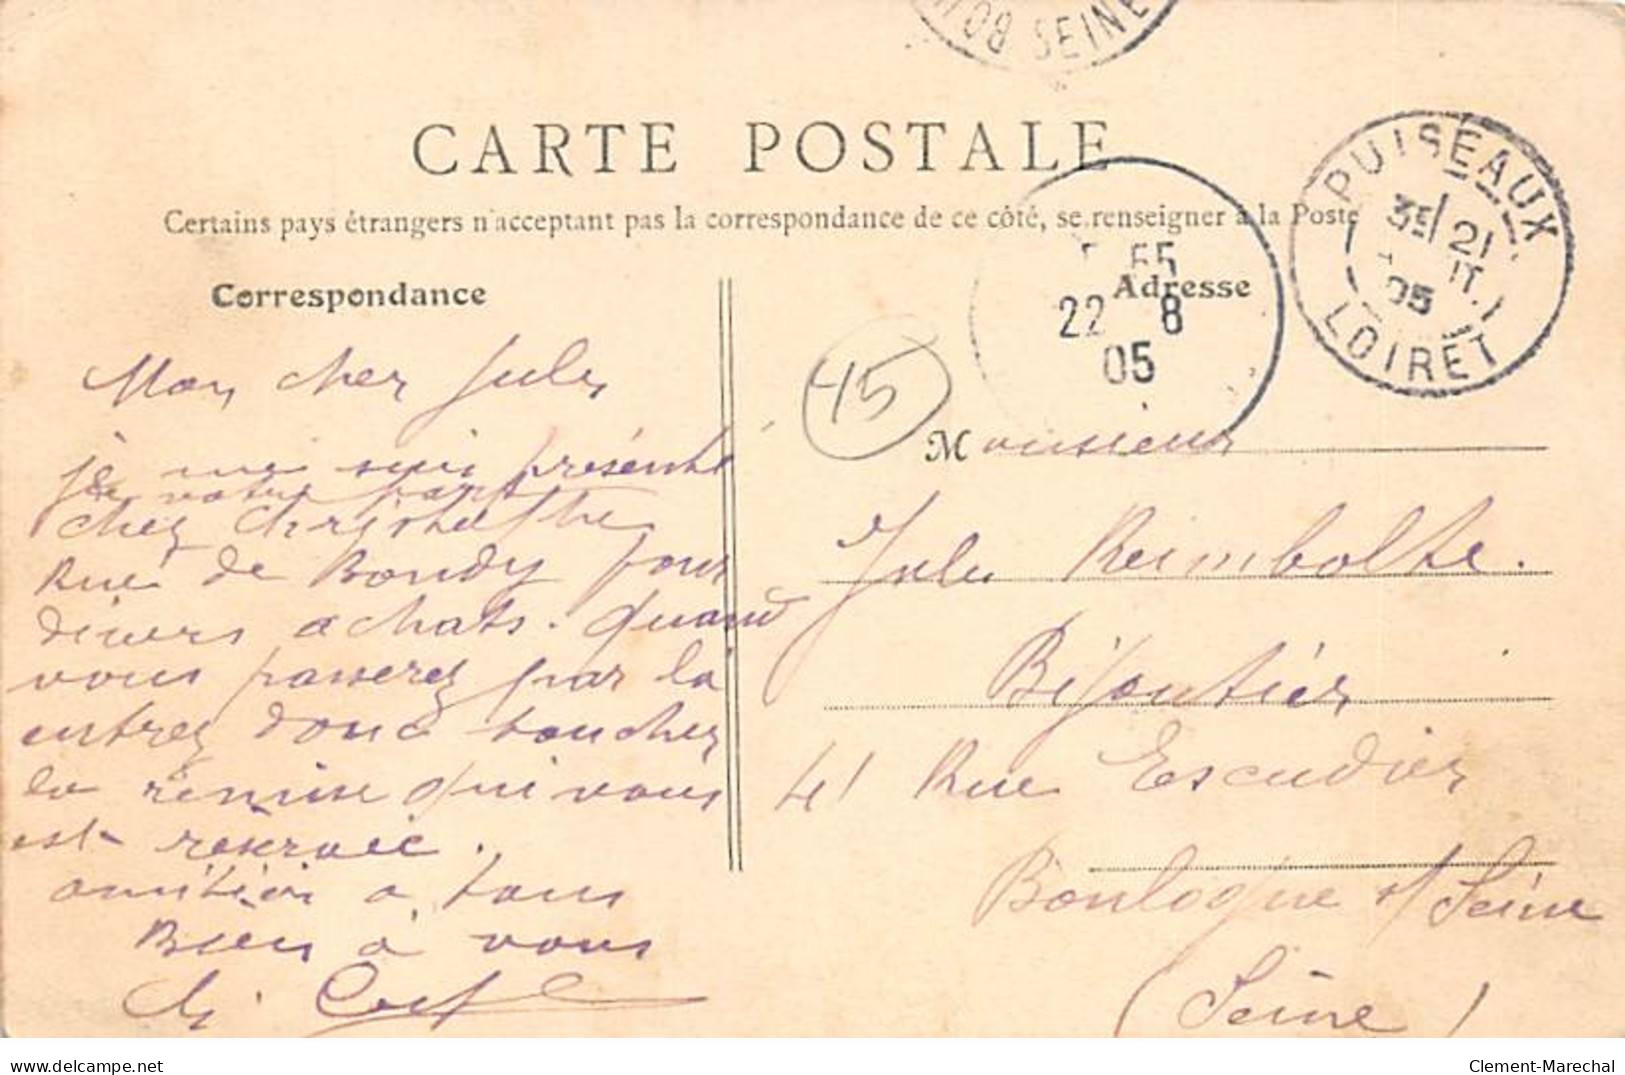 SEINE
CARTE POSTALE
Certains pays étrangers n'acceptent pas la correspondance de ce côté, se renseigner à la Poste
PUISEAUX
3E 21
05
LOIRET
22 8
05
Correspondance
Adresse
45
Mon cher Jules
je me suis présenté
de votre part
chez Christofle
Rue de Bondy pour
divers achats. Quand
vous passerez par là
entrez donc toucher
la remise qui vous
est réservée.
amitiés à tous
Bien à vous
Monsieur
Jules Reimbolte.
Bijoutier
41 Rue Escudier
Boulogne s/ Seine
(Seine)
delcampe.net
Clement-Marechal